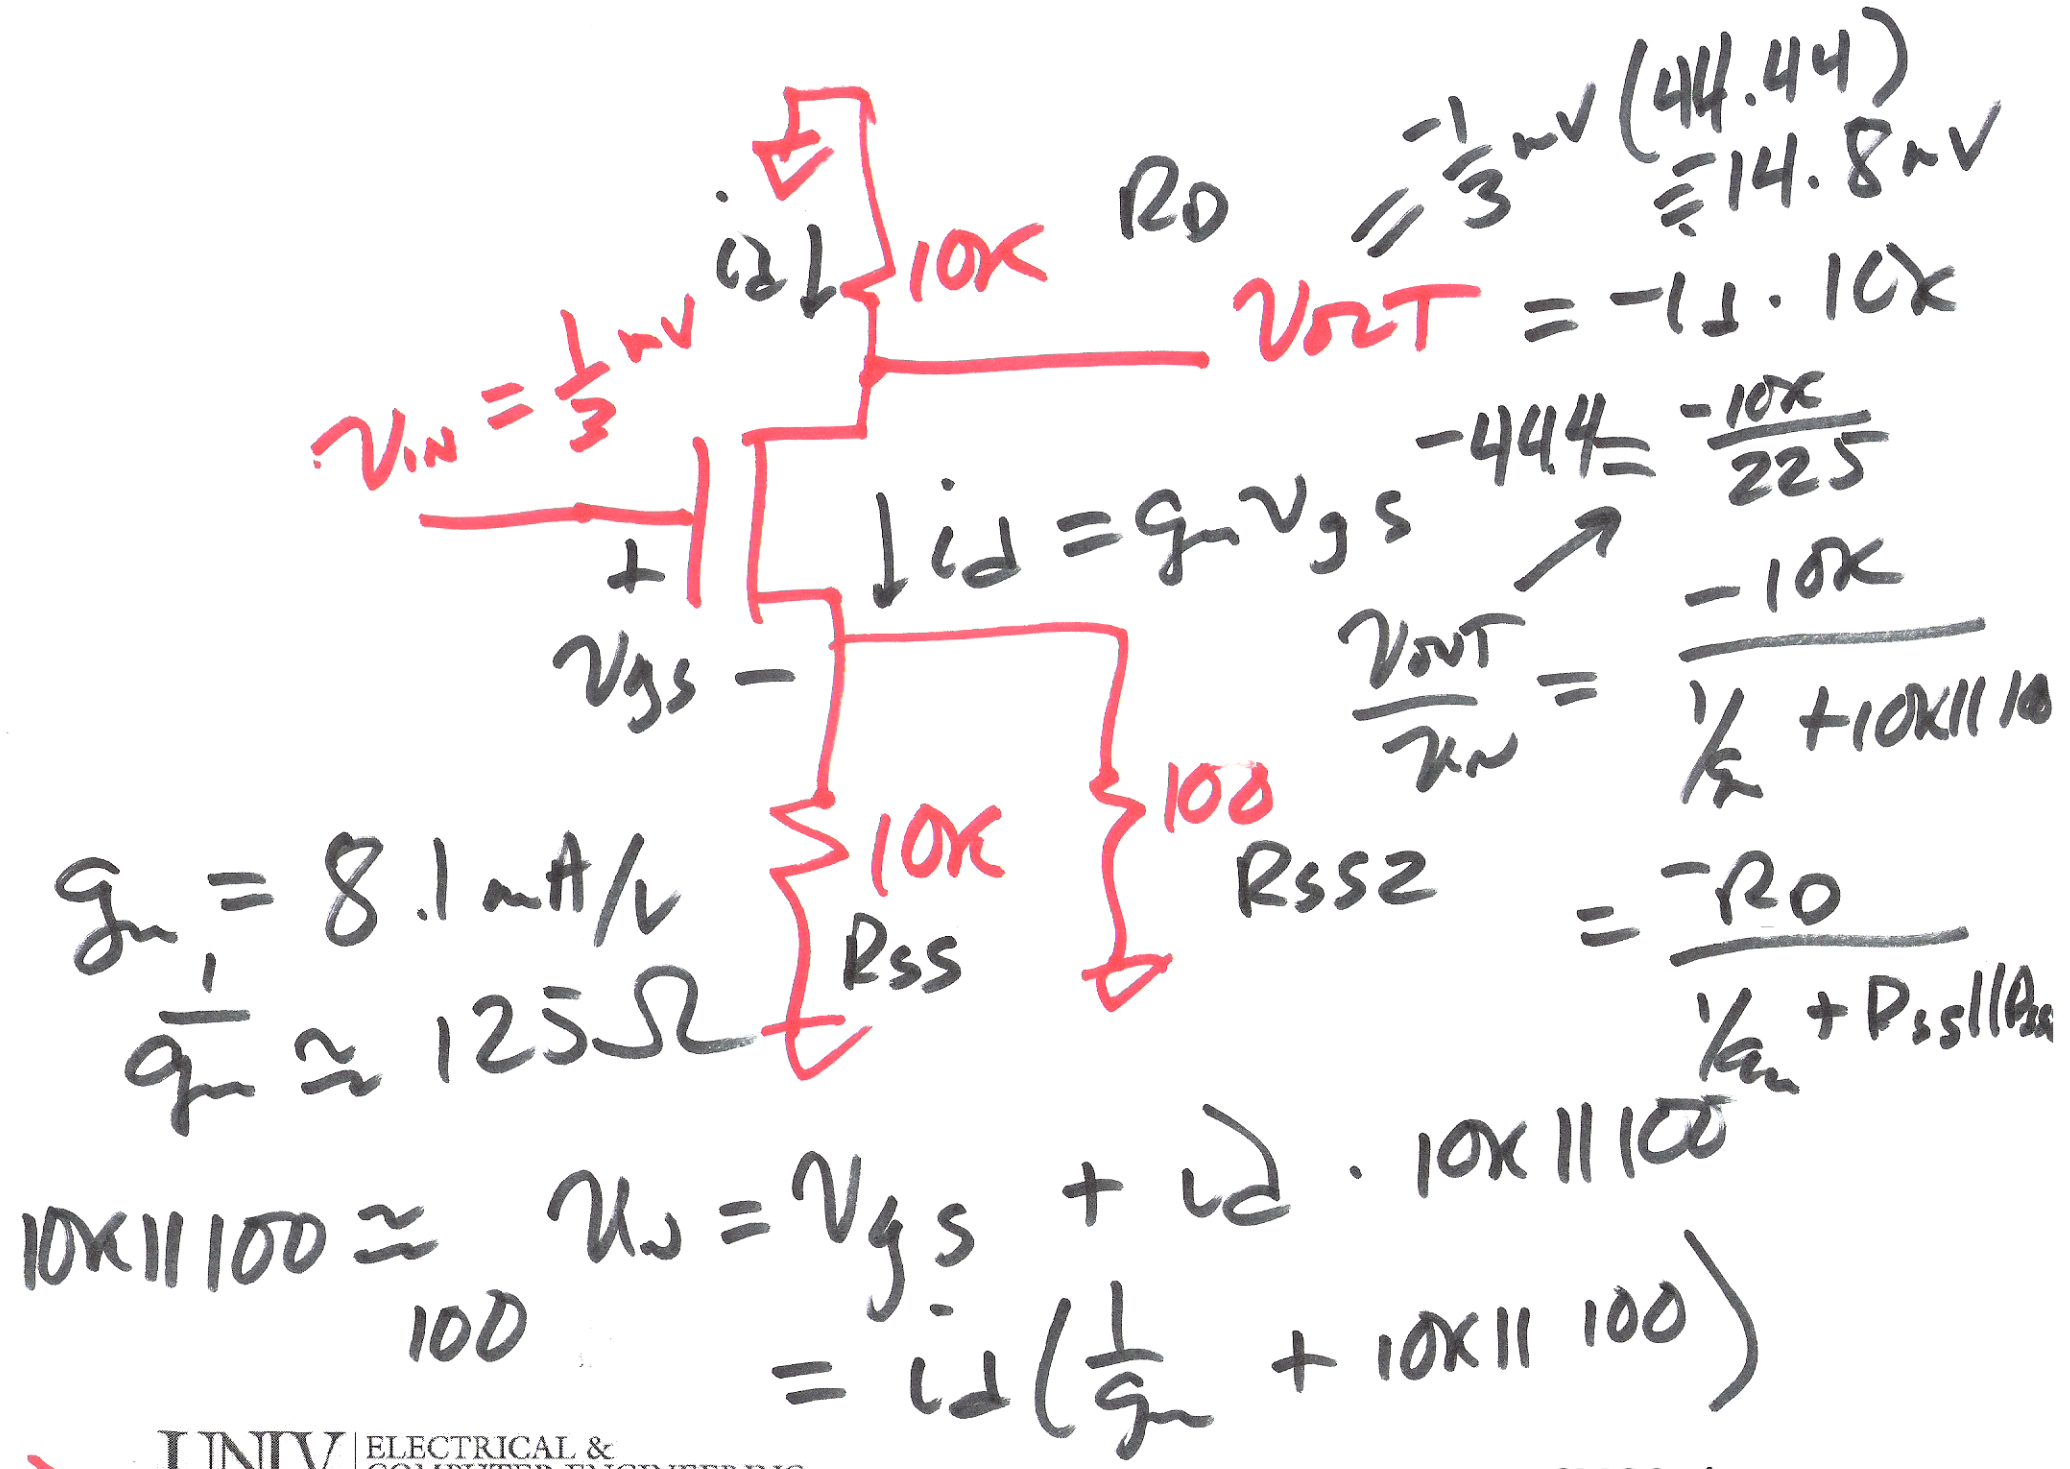 = -1/3 mV (44.44)
= 14.8 mV
RD
id ↓
10K
VOUT = -id · 10K
VIN = 1/3 mV
-44.4 = -10K/225
↓ id = gm vgs
+
vgs
-
VOUT/VIN = -10K / (1/gm + 10K||100)
10K
RSS
100
RSS2
= -RD / (1/gm + RSS||
gm = 8.1 mA/V
1/gm ≃ 125Ω
10K||100 ≃ 100
VIN = Vgs + id · 10K||100
= id (1/gm + 10K|| 100)
UNLV | ELECTRICAL &
COMPUTER ENGINEERING